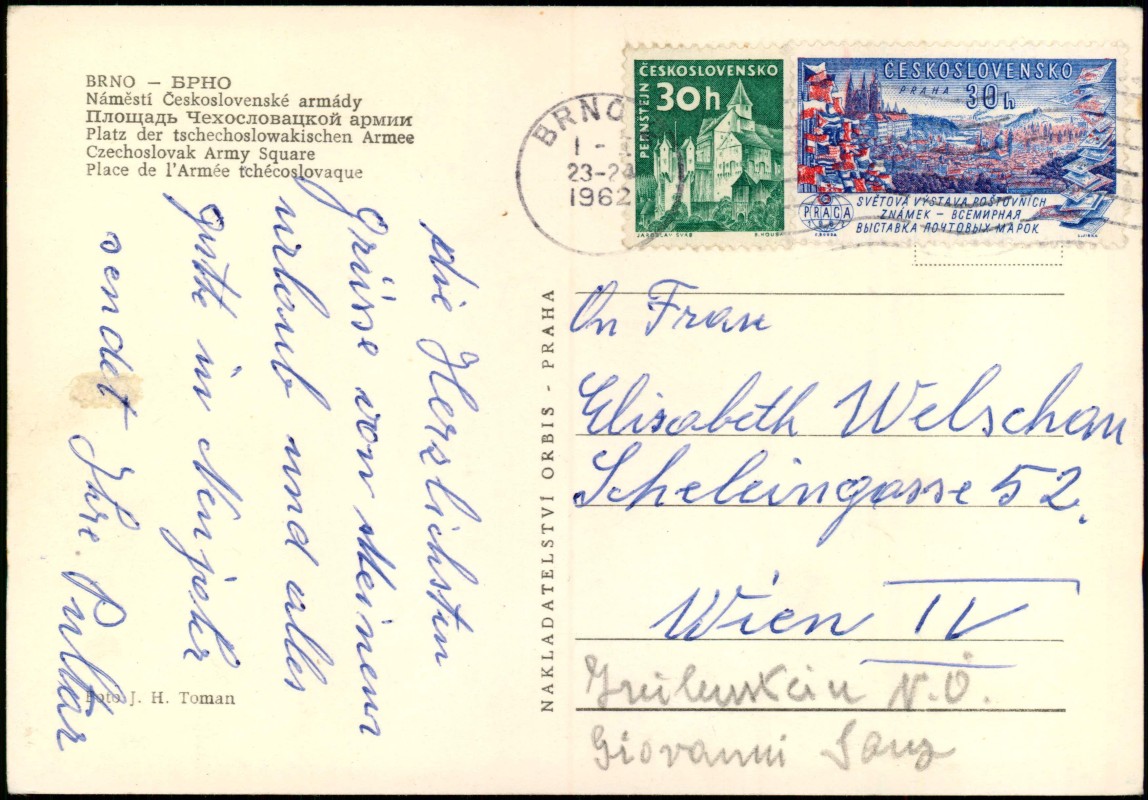 BRNO – БРНО
Náměstí Československé armády
Площадь Чехословацкой армии
Platz der tschechoslowakischen Armee
Czechoslovak Army Square
Place de l'Armée tchécoslovaque
die Herzlichsten
Grüsse von Meinem
urlaub und alles
gutte in Neujahr
sendet Ihre. Pultar
Foto J. H. Toman
NAKLADATELSTVÍ ORBIS - PRAHA
BRNO
23-24
1962
ČESKOSLOVENSKO
30h
PERNŠTEJN
JAROSLAV ŠVÁB
ČESKOSLOVENSKO
PRAHA 30h
PRAGA
SVĚTOVÁ VÝSTAVA POŠTOVNÍCH
ZNÁMEK – ВСЕМИРНАЯ
ВЫСТАВКА ПОЧТОВЫХ МАРОК
An Frau
Elisabeth Welschan
Scheleingasse 52.
Wien IV
Greilenstein N.Ö.
Giovanni